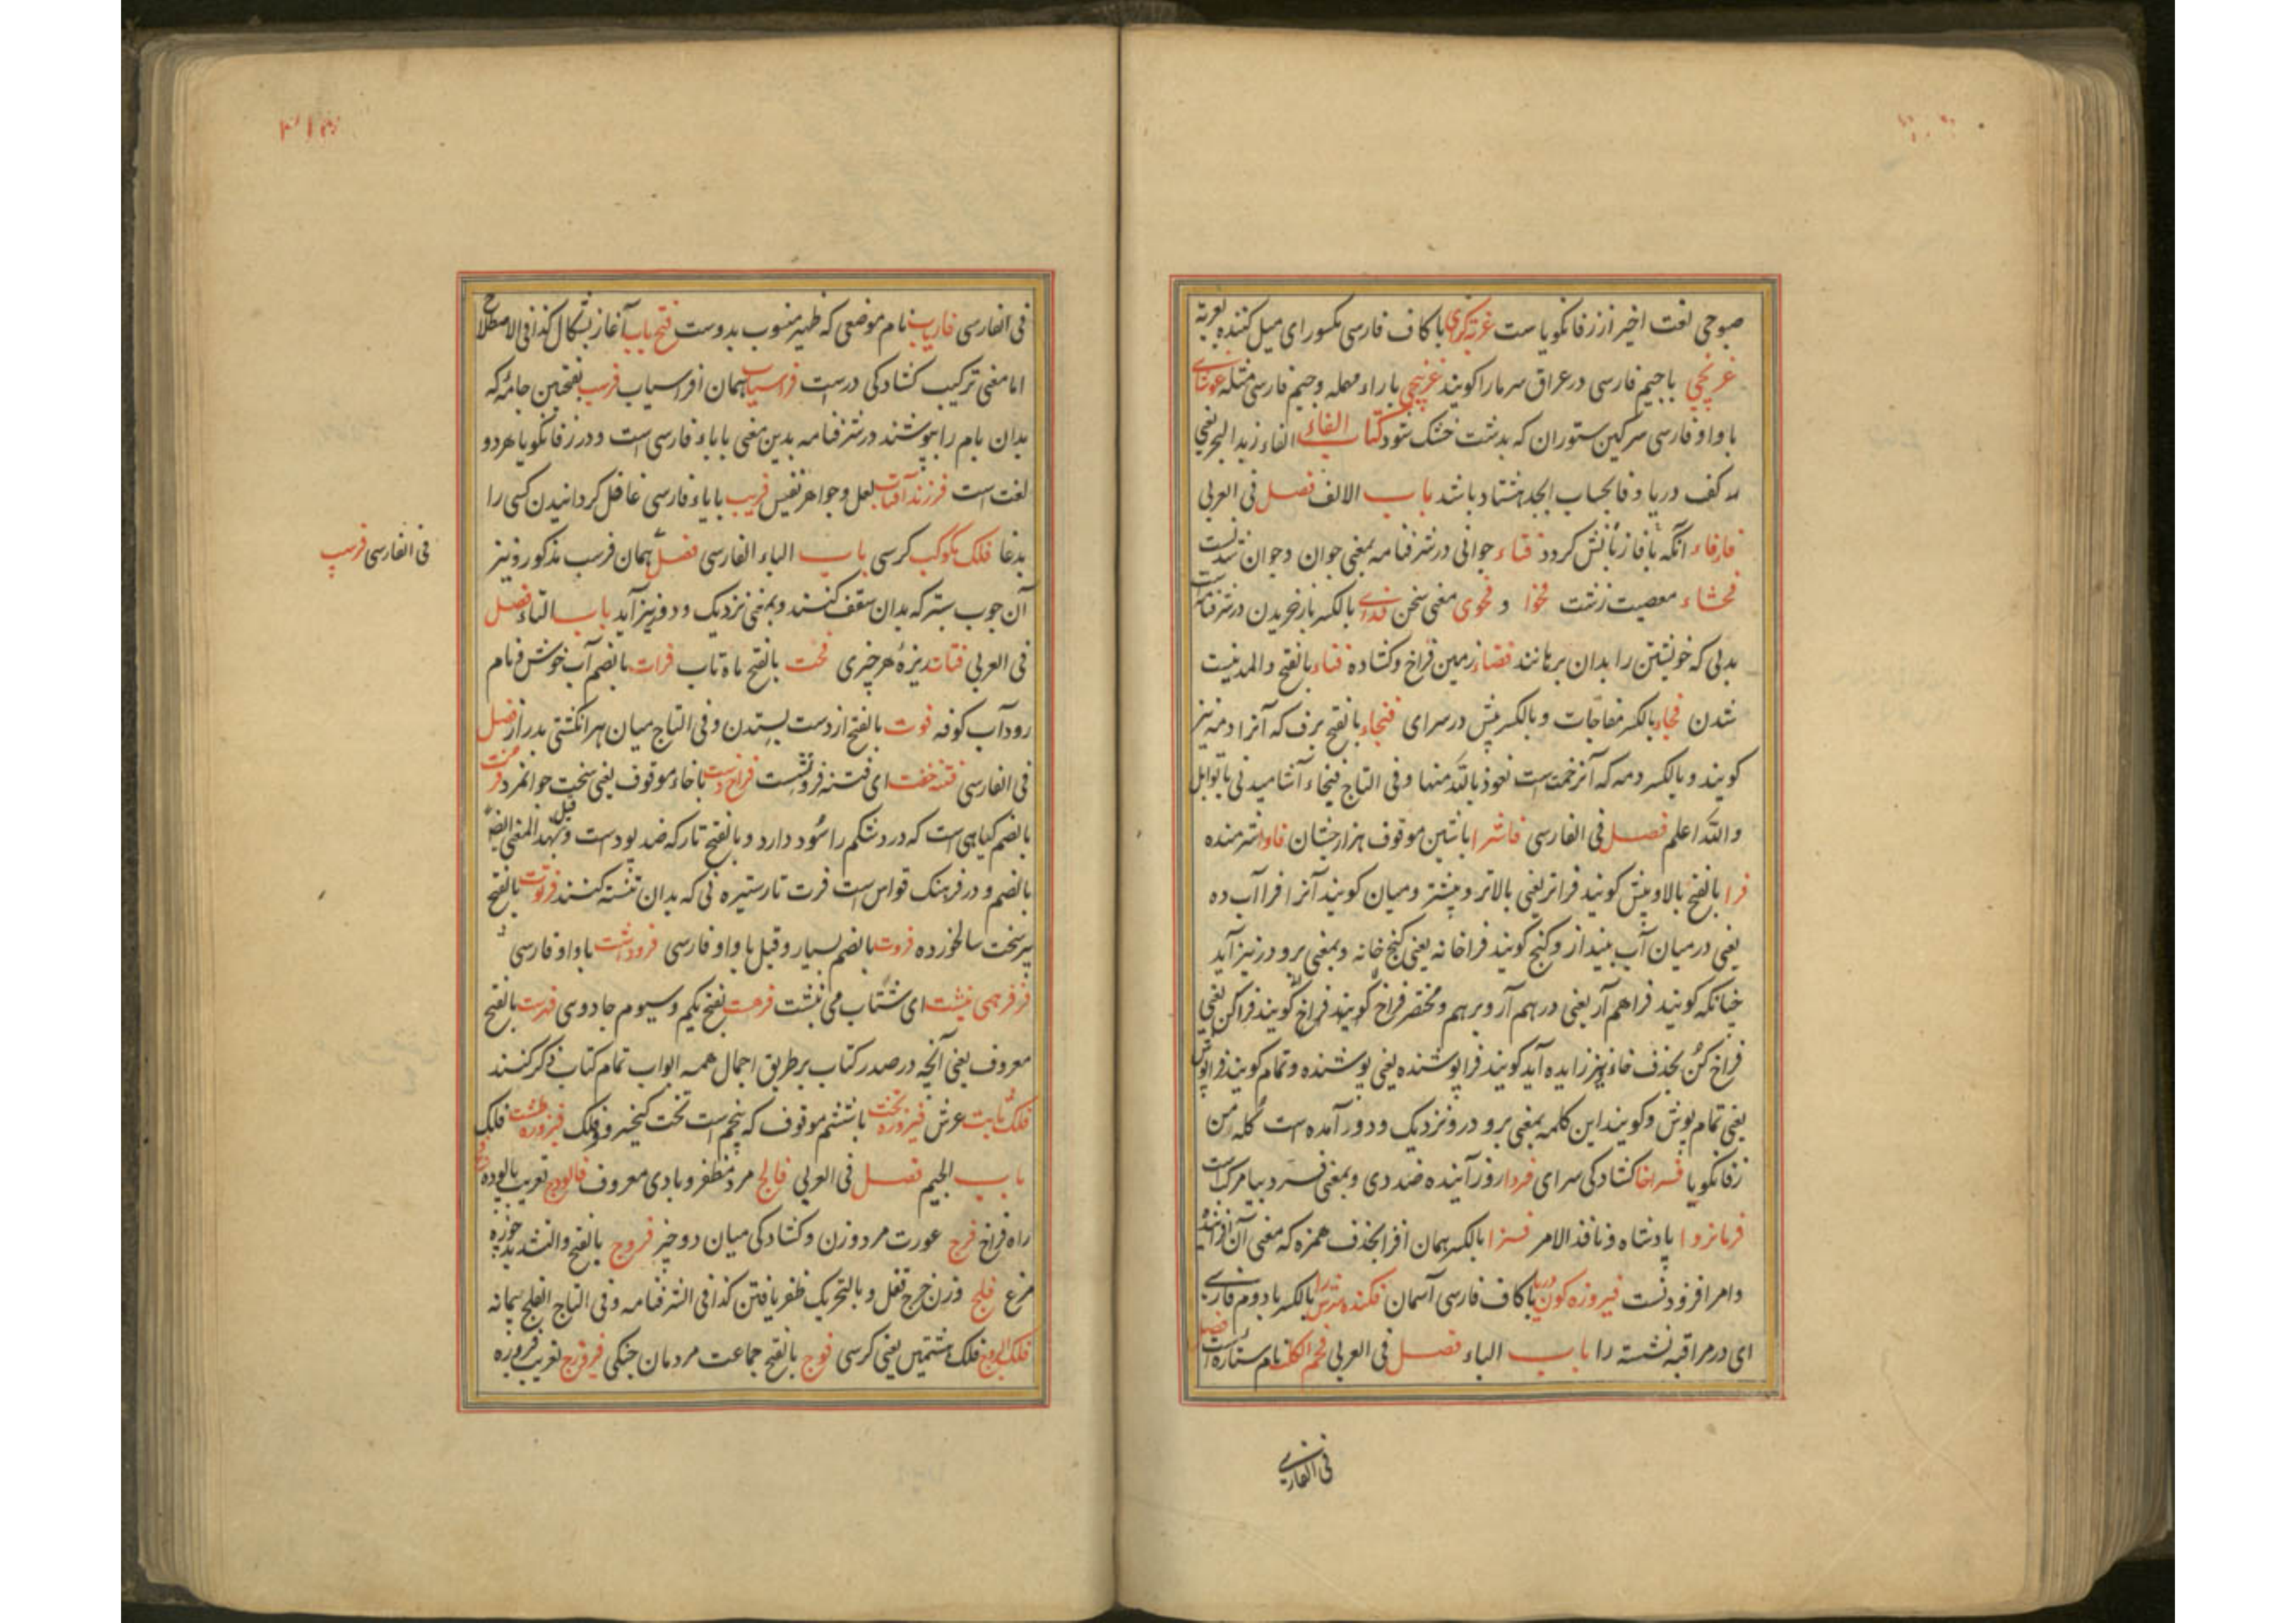 صبوحی لغت اخیر از زفانکویاست غرته کرای باکاف فارسی مکسور ای میل کننده بغرته
غرنچی باجیم فارسی در عراق سرمارا کویند غرپچی باراء مهمله وجیم فارسی مثله غوشای
باواو فارسی سرکین ستوران که بدشت خشک شود کتاب الفاء الفاء زبد البحر یعنی
کف دریا وفا بحساب ابجد هشتاد باشد باب الالف فصل فی العربی
فافاء آنکه بافا زبانش کردد فتاء جوانی در شرفنامه بمعنی جوان و جوان شدنست
فحشاء معصیت زشت فحوا و فحوی معنی سخن فدای بالکسر بازخریدن در شرفنامه است
بدلی که خویشتن را بدان برهانند فضاء زمین فراخ وکشاده فناء بالفتح والمد نیست
شدن فجاء بالکسر مفاجات وبالکسر پیش در سرای بالفتح برف که آنرا دمه نیز
کویند وبالکسر دمه که آنزحمتست نعوذ بالله منها وفی التاج فیخاء آشامیدنی با توابل
والله اعلم فصل فی الفارسی فاشرا باشین موقوف هزارجشان فاوا شرمنده
فرا بالفتح بالا وپیش کویند فراتر یعنی بالاتر وپیشتر ومیان کویند آنرا فراآب ده
یعنی درمیان آب بینداز وکنج کویند فراخانه یعنی کنج خانه وبمعنی بر ودر نیز آید
چنانکه کویند فراهم آر یعنی درهم آر وبرهم ومختصر فراخ کویند فراخ کویند فراکن یعنی
فراخ کن بحذف خاء ونیز زایده آید کویند فراپوشنده یعنی پوشنده وتمام کویند فراپوش
یعنی تمام پوش وکویند این کلمه بمعنی بر ودر ونزدیک ودور آمده است کله من
زفانکویا فراخا کشادکی سرای فردا روز آینده ضد دی وبمعنی فرد بیا مرکب است
فرمانروا پادشاه ونافذ الامر فزا بالکسر همان افزا بحذف همزه که معنی آن افزاینده
وامر افزودنست فیروزه کون دریا باکاف فارسی آسمان فکنده سرا بالکسر بادوم فارسی
ای در مراقبه نشسته را باب الباء فصل فی العربی فحم الکلب نام ستاره است فصل
فی الفارسی
فی الفارسی فاریاب نام موضعی که ظهیر منسوب بدوست فتح باب آغاز بشکال کذا فی الاصطلاح
اما معنی ترکیب کشادکی درست فراسیاب همان افراسیاب فرسب بفتحتین جامهٔ که
بدان بام را بپوشند در شرفنامه بدین معنی باباء فارسی است ودر زفانکویا هردو
لغت است فرزند آفتاب لعل وجواهر نفیس فریب بایاء فارسی غافل کردانیدن کسی را
بدغا فلک مکوکب کرسی باب الباء الفارسی فصل همان فرسب مذکور ونیز
فی الفارسی فرسپ
آن چوب ستبر که بدان سقف کنند وبمعنی نزدیک ودور نیز آید باب التاء فصل
فی العربی فتات ریزهٔ هرچیزی فخت بالفتح ماه تاب فرات بالضم آب خوش ونام
رود آب کوفه فوت بالفتح از دست بستدن وفی التاج میان هر انکشتی بدراز فصل
فی الفارسی فتنه خفت ای فتنه فرونشست فراخ دست باخاء موقوف یعنی سخت جوانمرد فرت
بالضم کیاهی است که درد شکم را سود دارد وبالفتح تار که ضد پودست وقیل بهذا المعنی ایضا
بالضم ودر فرهنک قواس است فرت تار ستیره نی که بدان تنسته کنند فرتوت بالفتح
پیر سخت سالخورده فروت بالضم بسیار وقیل باواو فارسی فروداشت باواو فارسی
فرفر همی نبشت ای شتاب می نبشت فرهست بفتح یکم وسیوم جادوی فهرست بالفتح
معروف یعنی آنچه در صدر کتاب بر طریق اجمال همه ابواب تمام کتاب ذکر کنند
فلک ثابت عرش فیروزه تخت باششم موقوف که پنجم است تخت کیخسرو وفلک فیروزه طشت فلک
باب الجیم فصل فی العربی فالج مرد مظفر وبادی معروف فالوذج تعریب پالوده
راه فراخ فرج عورت مرد وزن وکشادکی میان دو چیز فروج بالفتح والتشدید جوزه
مرغ فلج وزن خرج تفل وبالتحریک ظفر یافتن کذا فی الشرفنامه وفی التاج الفلج پیمانه
فلک البروج فلک هشتمین یعنی کرسی فوج بالفتح جماعت مردمان جنکی فیروزج تعریب فیروزه